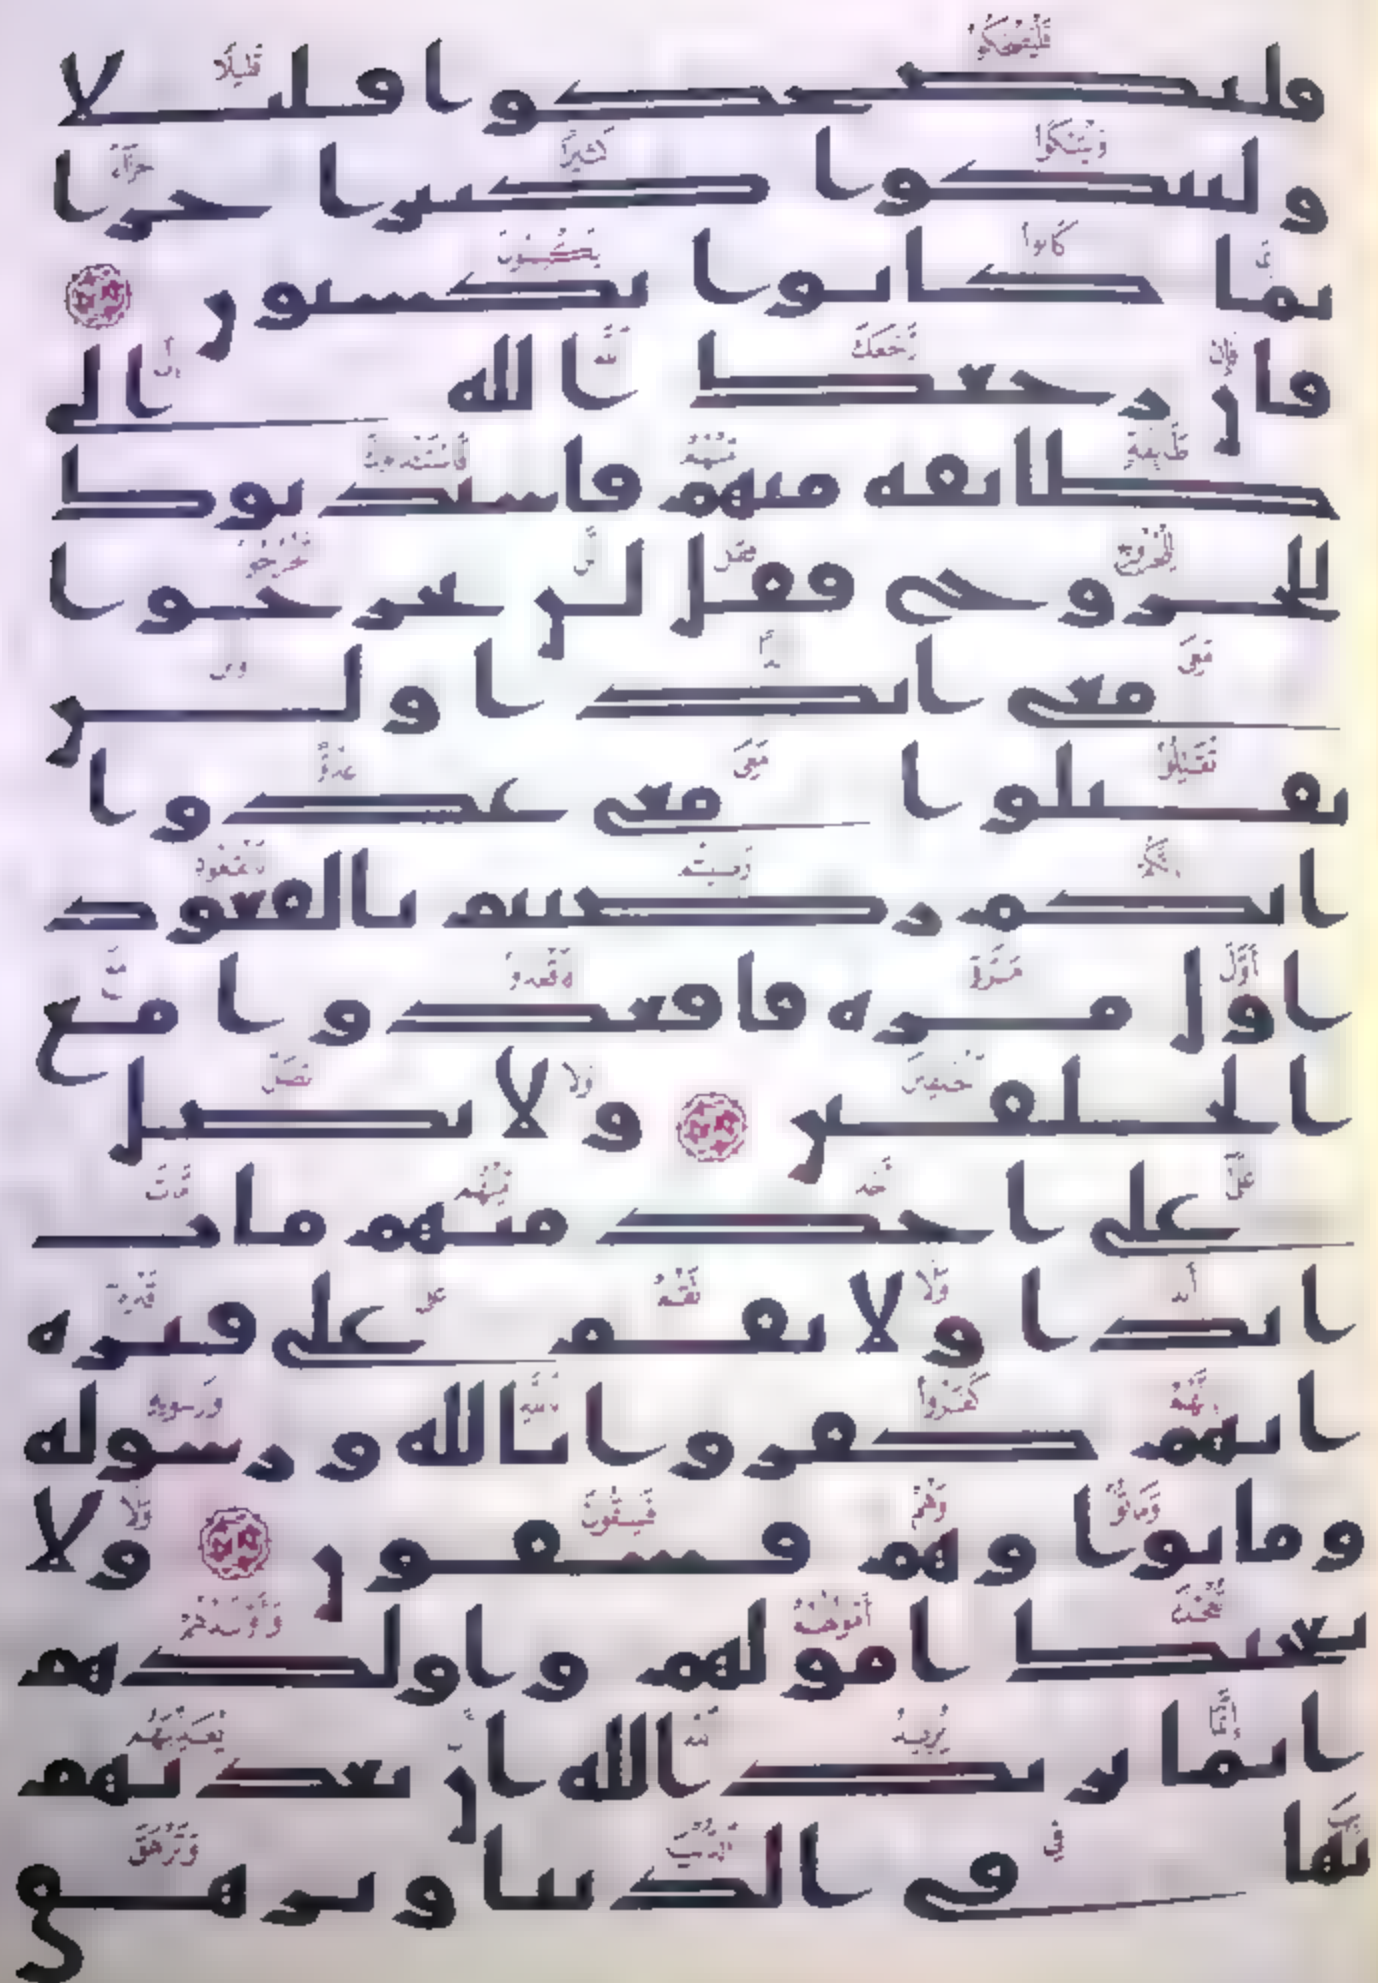 فليضحكوا قليلا
وليبكوا كثيرا جزا
بما كانوا يكسبون
فان رجعك الله الى
طائفه منهم فاستئذنوك
للخروج فقل لن تخرجوا
معى ابدا ولن
تقتلوا معى عدوا
انكم رضيتم بالقعود
اول مره فاقعدوا مع
الخلفين ولا تصل
على احد منهم مات
ابدا ولا تقم على قبره
انهم كفروا بالله ورسوله
وماتوا وهم فسقون ولا
تعجبك امولهم واولدهم
انما يريد الله ان يعذبهم
بها فى الدنيا وتزهق